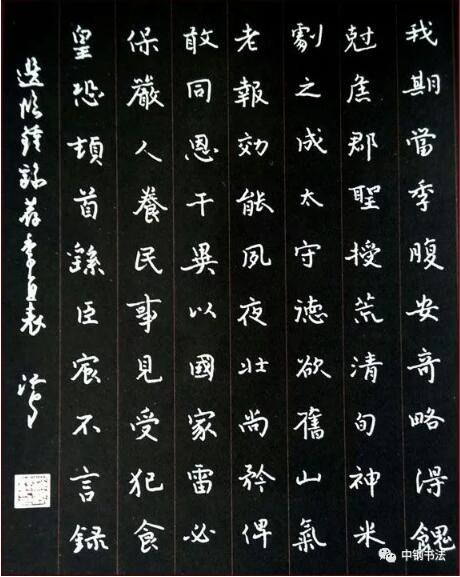 我期當季腹安奇略得餽
尅焦郡聖授荒清旬神米
劇之成太守德欲舊山氣
老報効能夙夜壯尚矜俾
敢同恩干異以國家雷必
保嚴人養民事見受犯食
皇恐頓首繇臣宸不言録
選臨鍾繇荐季直表
中钢书法